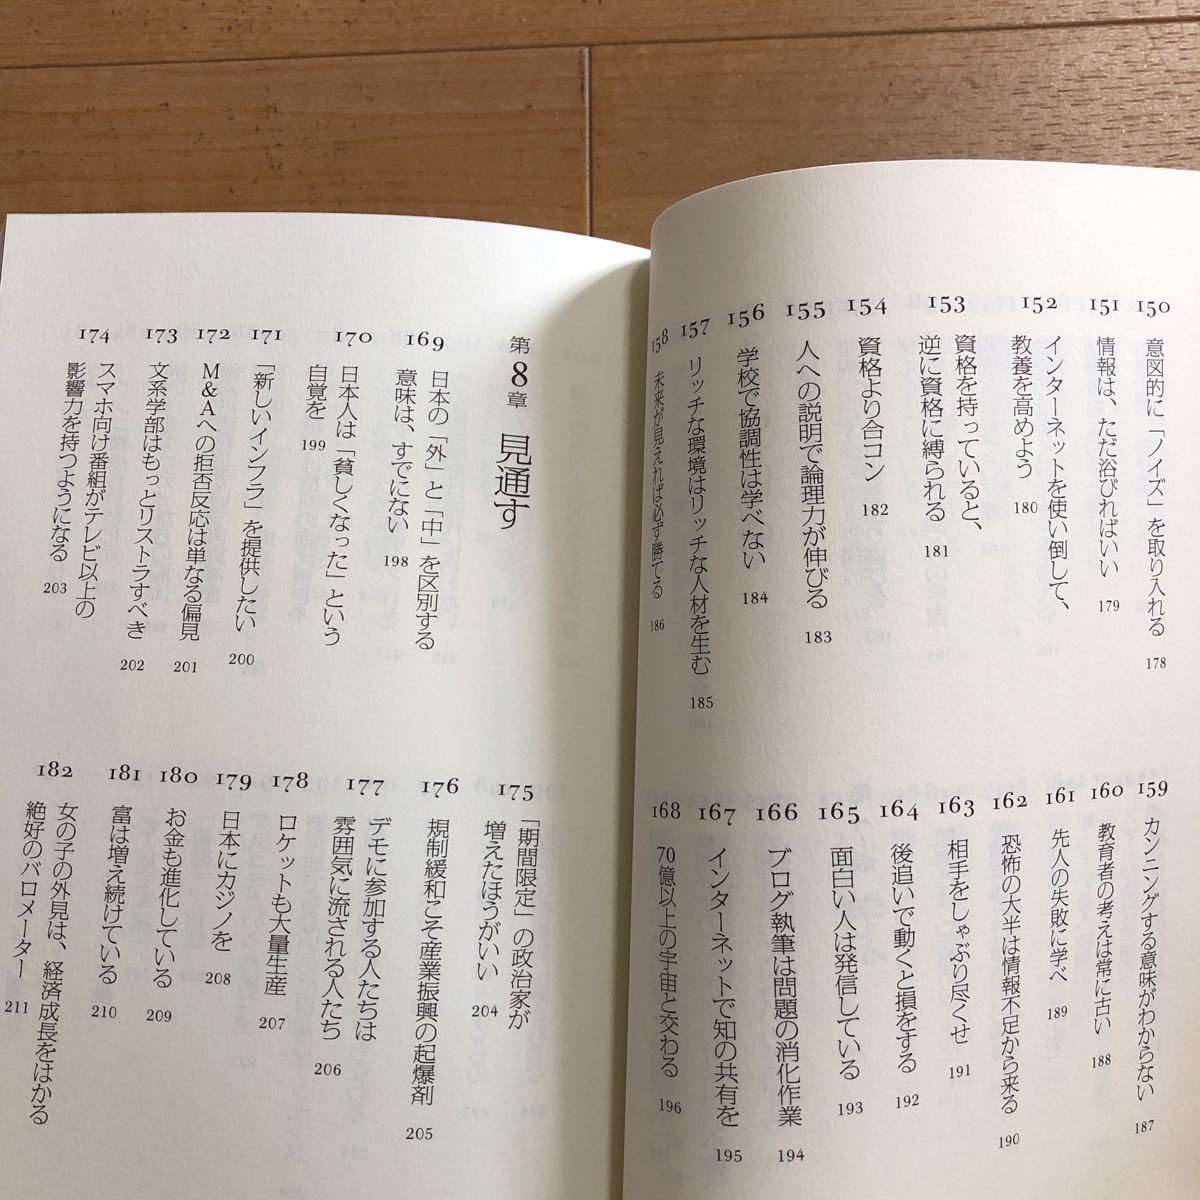 150 意図的に「ノイズ」を取り入れる 178
151 情報は、ただ浴びればいい 179
152 インターネットを使い倒して、
教養を高めよう 180
153 資格を持っていると、
逆に資格に縛られる 181
154 資格より合コン 182
155 人への説明で論理力が伸びる 183
156 学校で協調性は学べない 184
157 リッチな環境はリッチな人材を生む 185
158 未来が見えれば必ず勝てる 186
159 カンニングする意味がわからない 187
160 教育者の考えは常に古い 188
161 先人の失敗に学べ 189
162 恐怖の大半は情報不足から来る 190
163 相手をしゃぶり尽くせ 191
164 後追いで動くと損をする 192
165 面白い人は発信している 193
166 ブログ執筆は問題の消化作業 194
167 インターネットで知の共有を 195
168 70億以上の宇宙と交わる 196
第8章 見通す
169 日本の「外」と「中」を区別する
意味は、すでにない 198
170 日本人は「貧しくなった」という
自覚を 199
171 「新しいインフラ」を提供したい 200
172 M&Aへの拒否反応は単なる偏見 201
173 文系学部はもっとリストラすべき 202
174 スマホ向け番組がテレビ以上の
影響力を持つようになる 203
175 「期間限定」の政治家が
増えたほうがいい 204
176 規制緩和こそ産業振興の起爆剤 205
177 デモに参加する人たちは
雰囲気に流される人たち 206
178 ロケットも大量生産 207
179 日本にカジノを 208
180 お金も進化している 209
181 富は増え続けている 210
182 女の子の外見は、経済成長をはかる
絶好のバロメーター 211